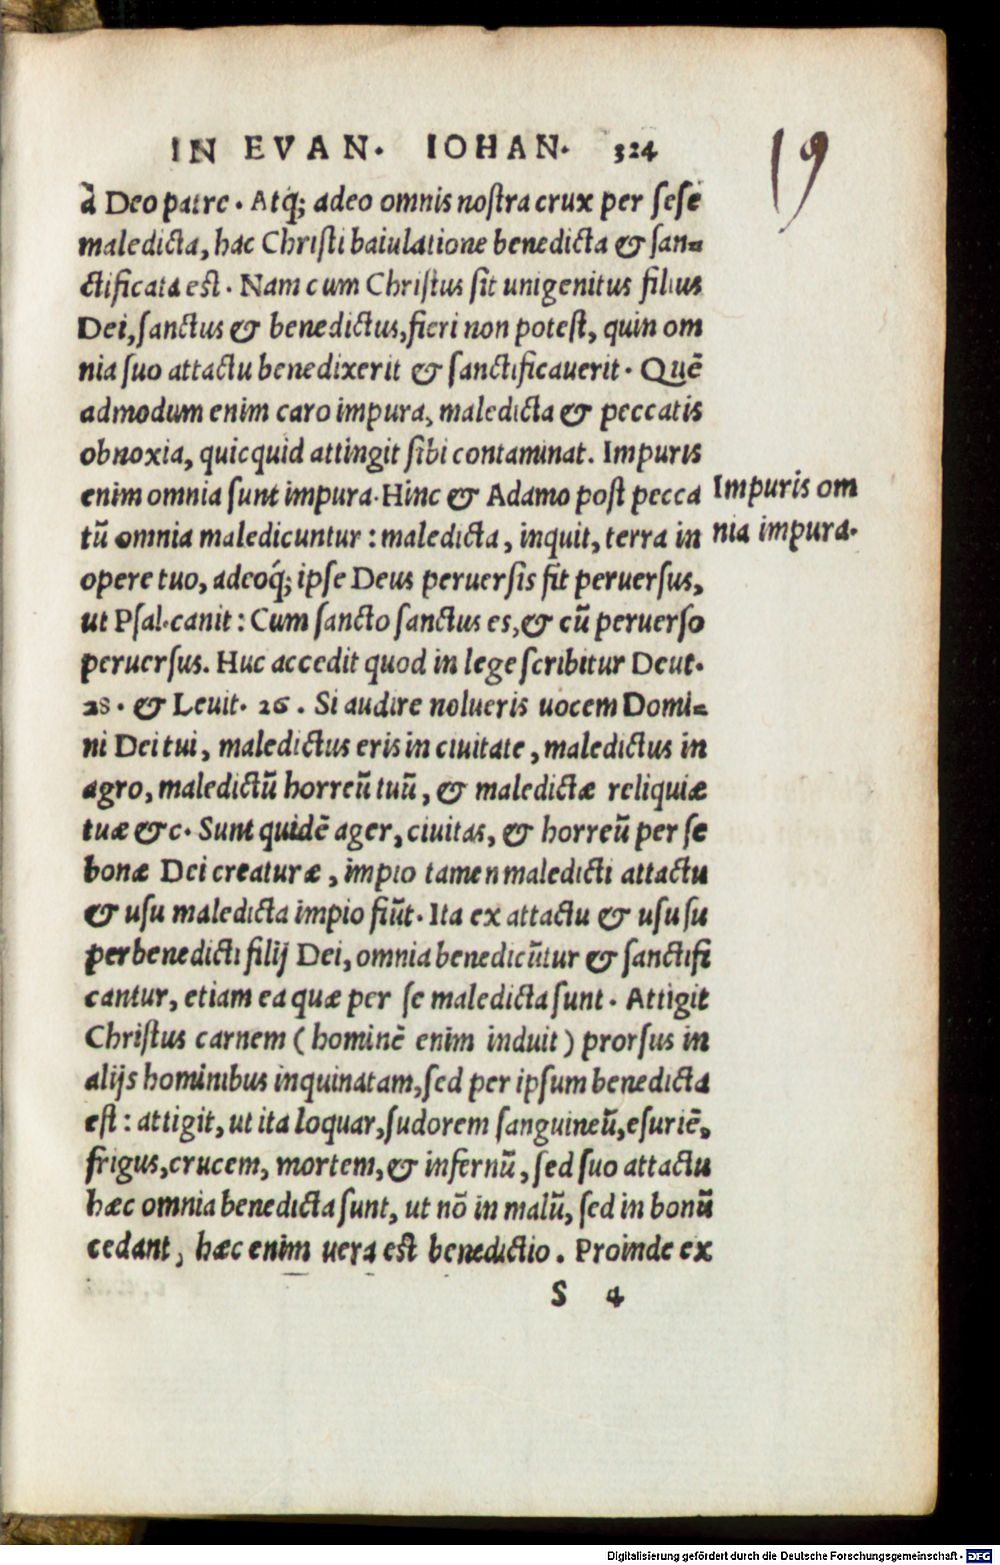 IN EVAN. IOHAN. 324
19
à Deo patre. Atq; adeo omnis nostra crux per sese
maledicta, hac Christi baiulatione benedicta & san=
ctificata est. Nam cum Christus sit unigenitus filius
Dei, sanctus & benedictus, fieri non potest, quin om
nia suo attactu benedixerit & sanctificauerit. Quē
admodum enim caro impura, maledicta & peccatis
obnoxia, quicquid attingit sibi contaminat. Impuris
enim omnia sunt impura. Hinc & Adamo post pecca
tū omnia maledicuntur: maledicta, inquit, terra in
opere tuo, adeoq́; ipse Deus peruersis fit peruersus,
ut Psal. canit: Cum sancto sanctus es, & cū peruerso
peruersus. Huc accedit quod in lege scribitur Deut.
28. & Leuit. 26. Si audire nolueris uocem Domi=
ni Dei tui, maledictus eris in ciuitate, maledictus in
agro, maledictū horreū tuū, & maledictæ reliquiæ
tuæ &c. Sunt quidē ager, ciuitas, & horreū per se
bonæ Dei creaturæ, impio tamen maledicti attactu
& usu maledicta impio fiūt. Ita ex attactu & usu su
perbenedicti filij Dei, omnia benedicūtur & sanctifi
cantur, etiam ea quæ per se maledicta sunt. Attigit
Christus carnem (hominē enim induit) prorsus in
alijs hominibus inquinatam, sed per ipsum benedicta
est: attigit, ut ita loquar, sudorem sanguineū, esuriē,
frigus, crucem, mortem, & infernū, sed suo attactu
hæc omnia benedicta sunt, ut nō in malū, sed in bonū
cedant, hæc enim uera est benedictio. Proinde ex
S 4
Impuris om
nia impura.
Digitalisierung gefördert durch die Deutsche Forschungsgemeinschaft - DFG